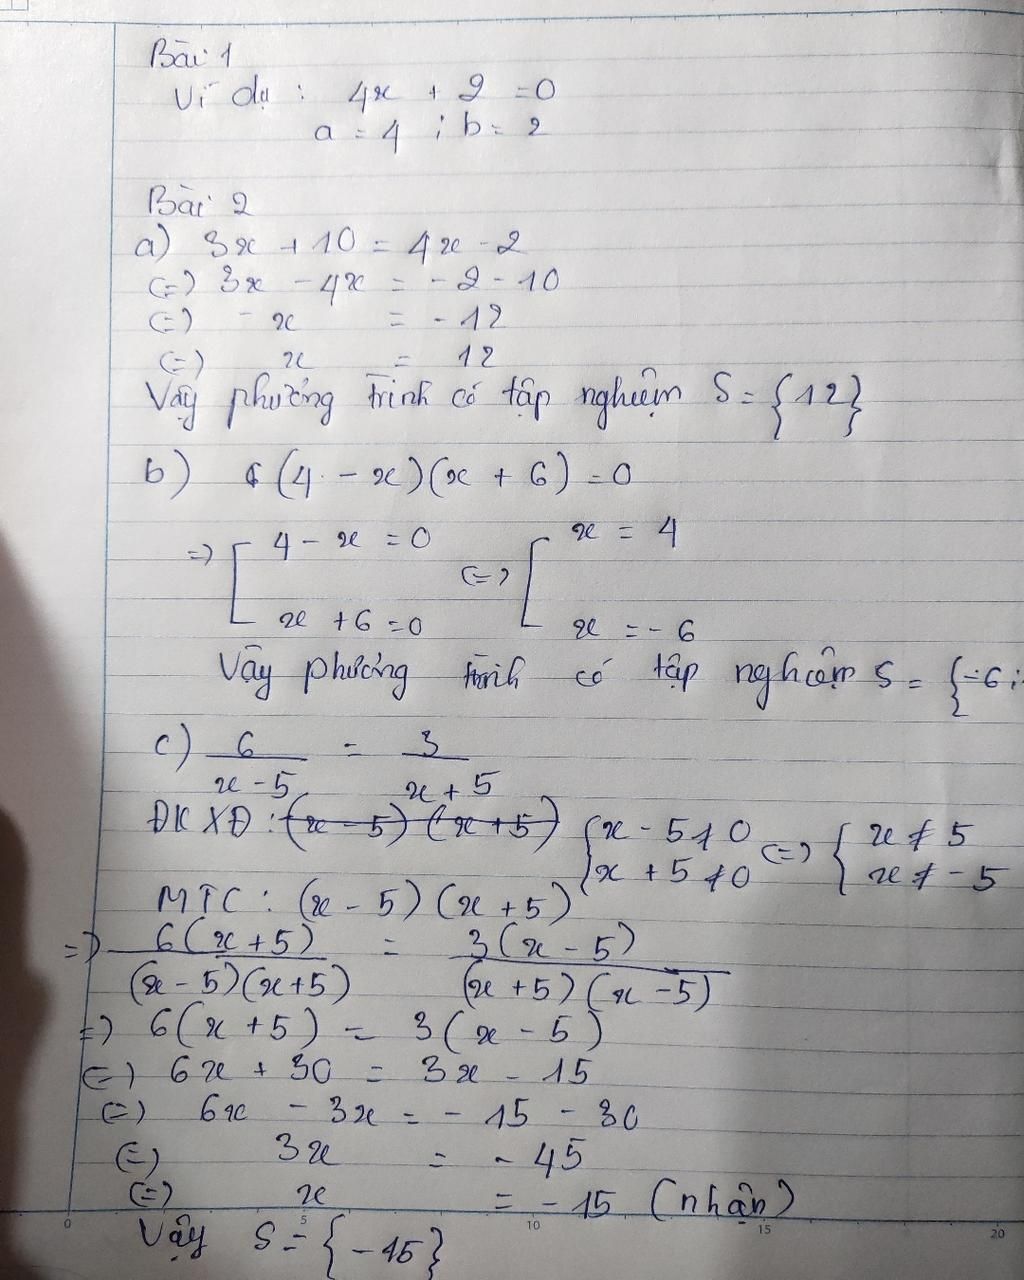 Bài 1
Ví dụ : 4x + 2 = 0
a = 4 ; b = 2
Bài 2
a) 3x + 10 = 4x - 2
(=) 3x - 4x = - 2 - 10
(=) - x = - 12
(=) x = 12
Vậy phương trình có tập nghiệm S = {12}
b) (4 - x)(x + 6) = 0
=) [ 4 - x = 0 (=) [ x = 4
x + 6 = 0 x = - 6
Vậy phương trình có tập nghiệm S = {-6;
c) 6/(x - 5) = 3/(x + 5)
ĐKXĐ : (x - 5) (x + 5) { x - 5 ≠ 0 (=) { x ≠ 5
x + 5 ≠ 0 x ≠ - 5
MTC : (x - 5) (x + 5)
=) 6(x + 5) / (x - 5)(x + 5) = 3(x - 5) / (x + 5)(x - 5)
=) 6(x + 5) = 3(x - 5)
(=) 6x + 30 = 3x - 15
(=) 6x - 3x = - 15 - 30
(=) 3x = - 45
(=) x = - 15 (nhận)
Vậy S = {-15}
0 5 10 15 20